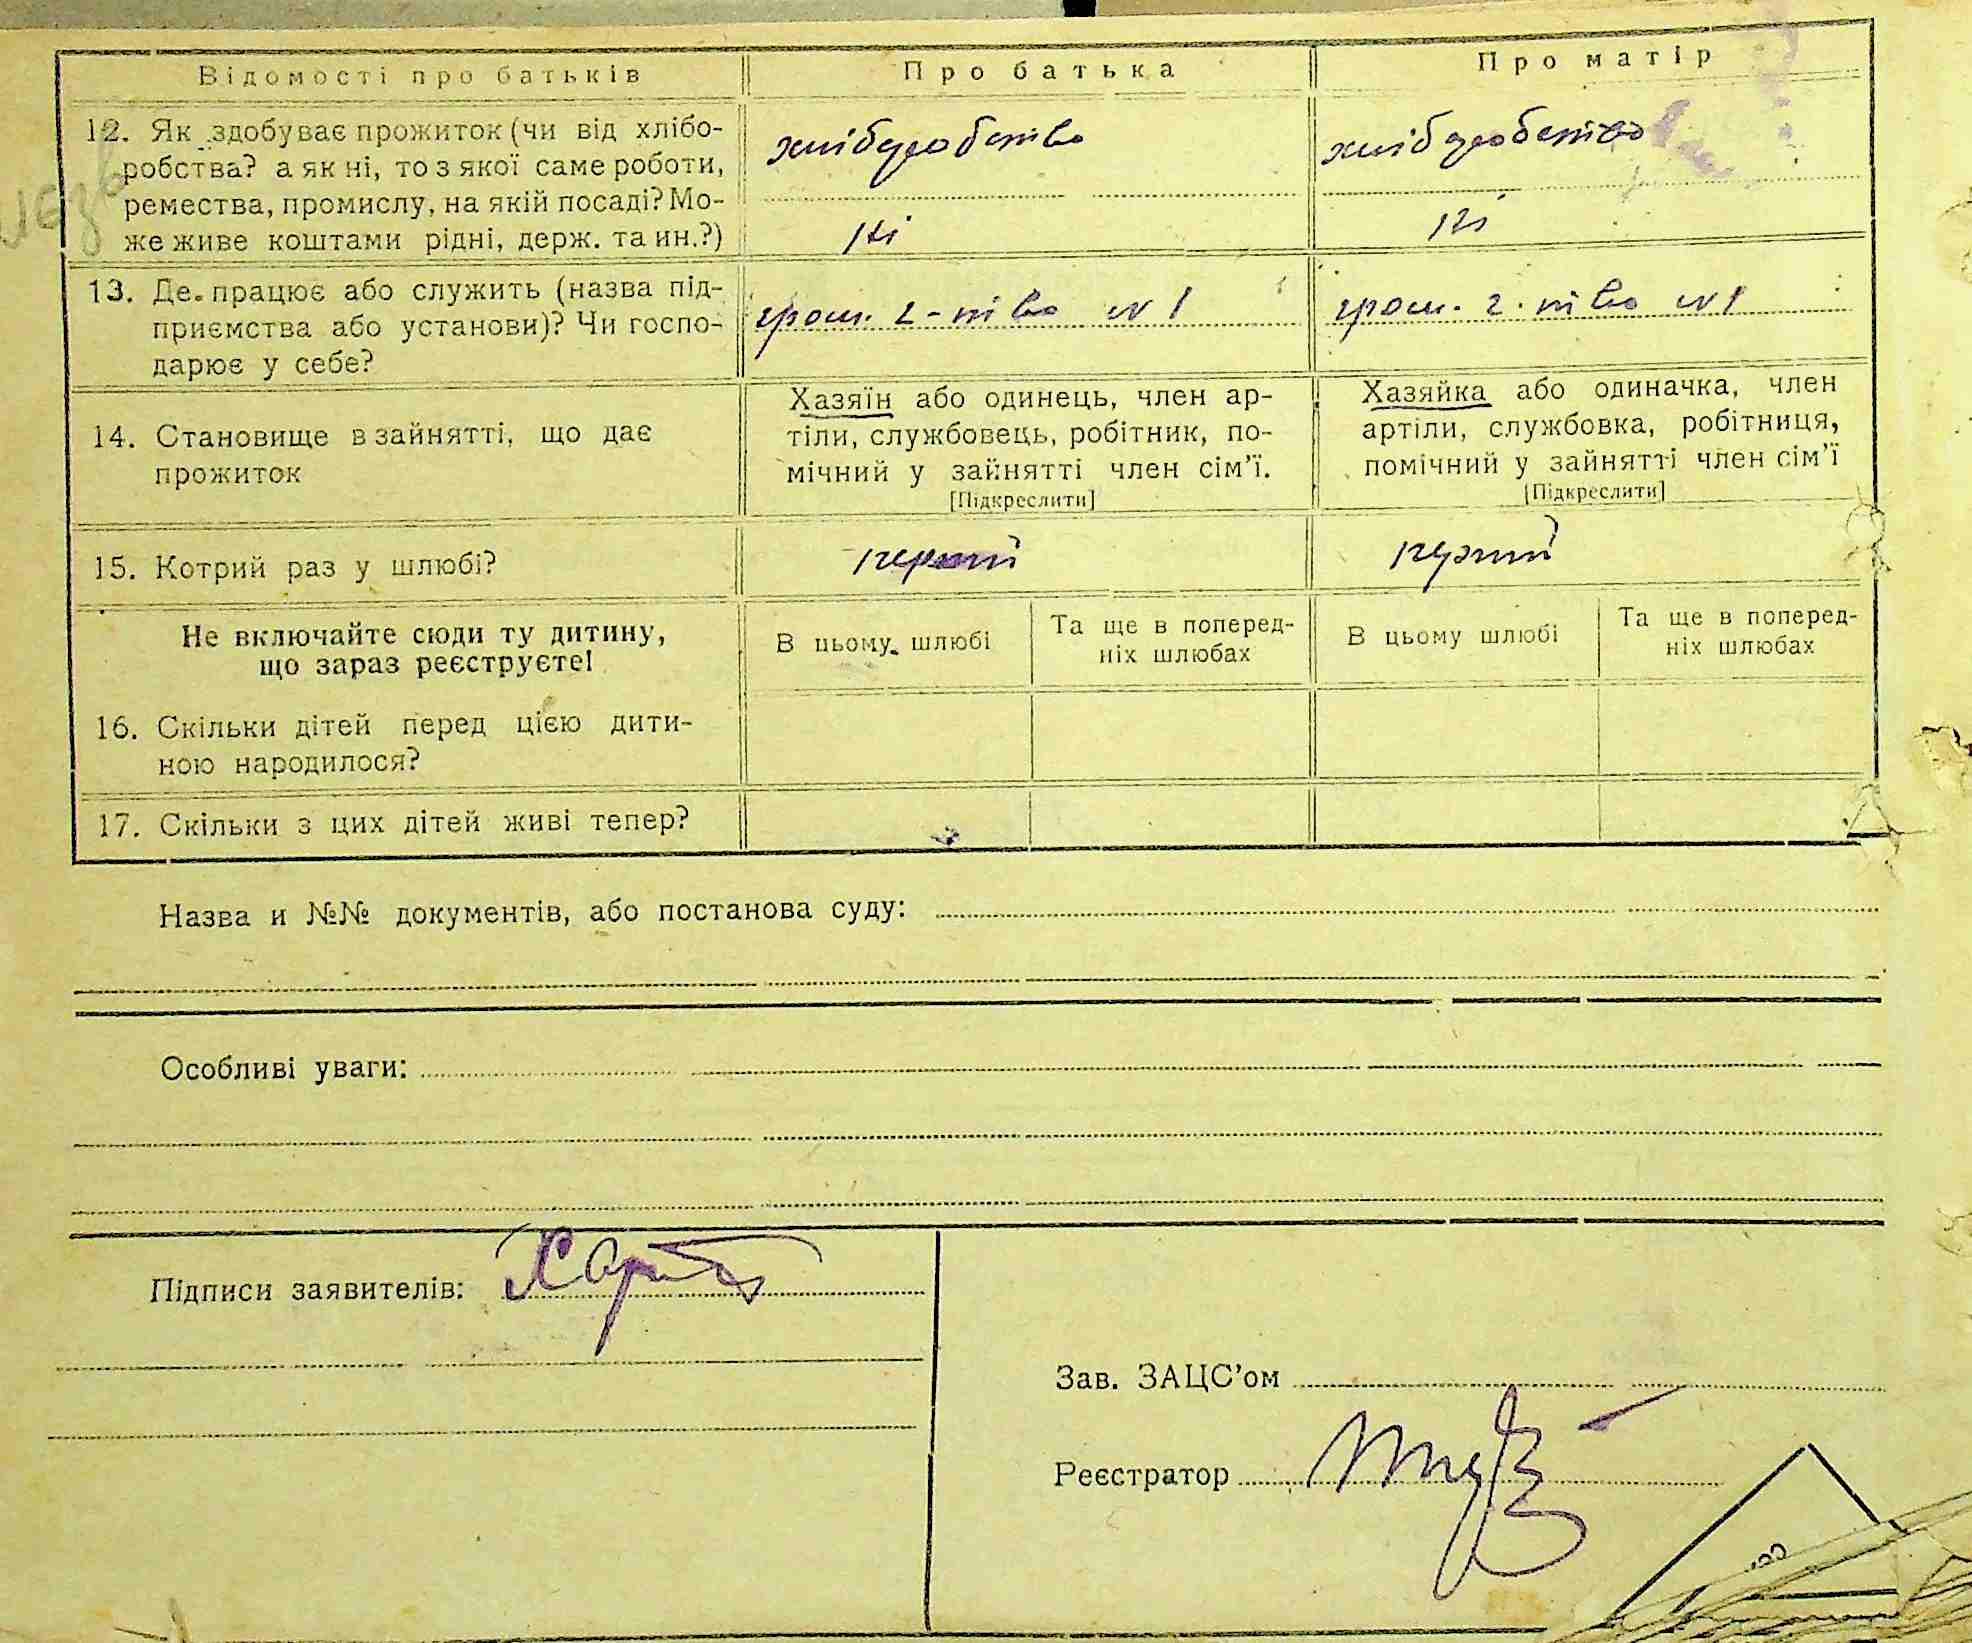 Відомості про батьків
Про батька
Про матір
12. Як здобуває прожиток (чи від хлібо-
робства? а як ні, то з якої саме роботи,
ремества, промислу, на якій посаді? Мо-
же живе коштами рідні, держ. та ин.?)
хліборобство
ні
хліборобство
ні
13. Де працює або служить (назва під-
приємства або установи)? Чи госпо-
дарює у себе?
гром. г-тво № 1
гром. г-тво № 1
14. Становище в зайнятті, що дає
прожиток
Хазяїн або одинець, член ар-
тіли, службовець, робітник, по-
мічний у зайнятті член сім'ї.
[Підкреслити]
Хазяйка або одиначка, член
артіли, службовка, робітниця,
помічний у зайнятті член сім'ї
[Підкреслити]
15. Котрий раз у шлюбі?
перший
перший
Не включайте сюди ту дитину,
що зараз реєструєте!
В цьому шлюбі
Та ще в поперед-
ніх шлюбах
В цьому шлюбі
Та ще в поперед-
ніх шлюбах
16. Скільки дітей перед цією дити-
ною народилося?
17. Скільки з цих дітей живі тепер?
Назва и №№ документів, або постанова суду:
Особливі уваги:
Підписи заявителів:
Зав. ЗАЦС'ом
Реєстратор